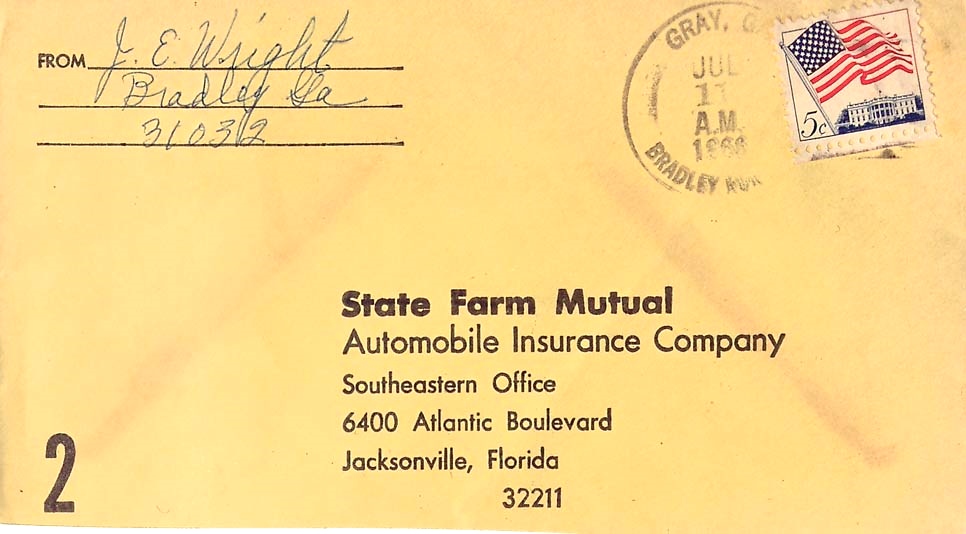 FROM J. E. Wright
Bradley Ga
31032
GRAY, G
JUL
11
A.M.
1966
BRADLEY RUR
5c
State Farm Mutual
Automobile Insurance Company
Southeastern Office
6400 Atlantic Boulevard
Jacksonville, Florida
32211
2